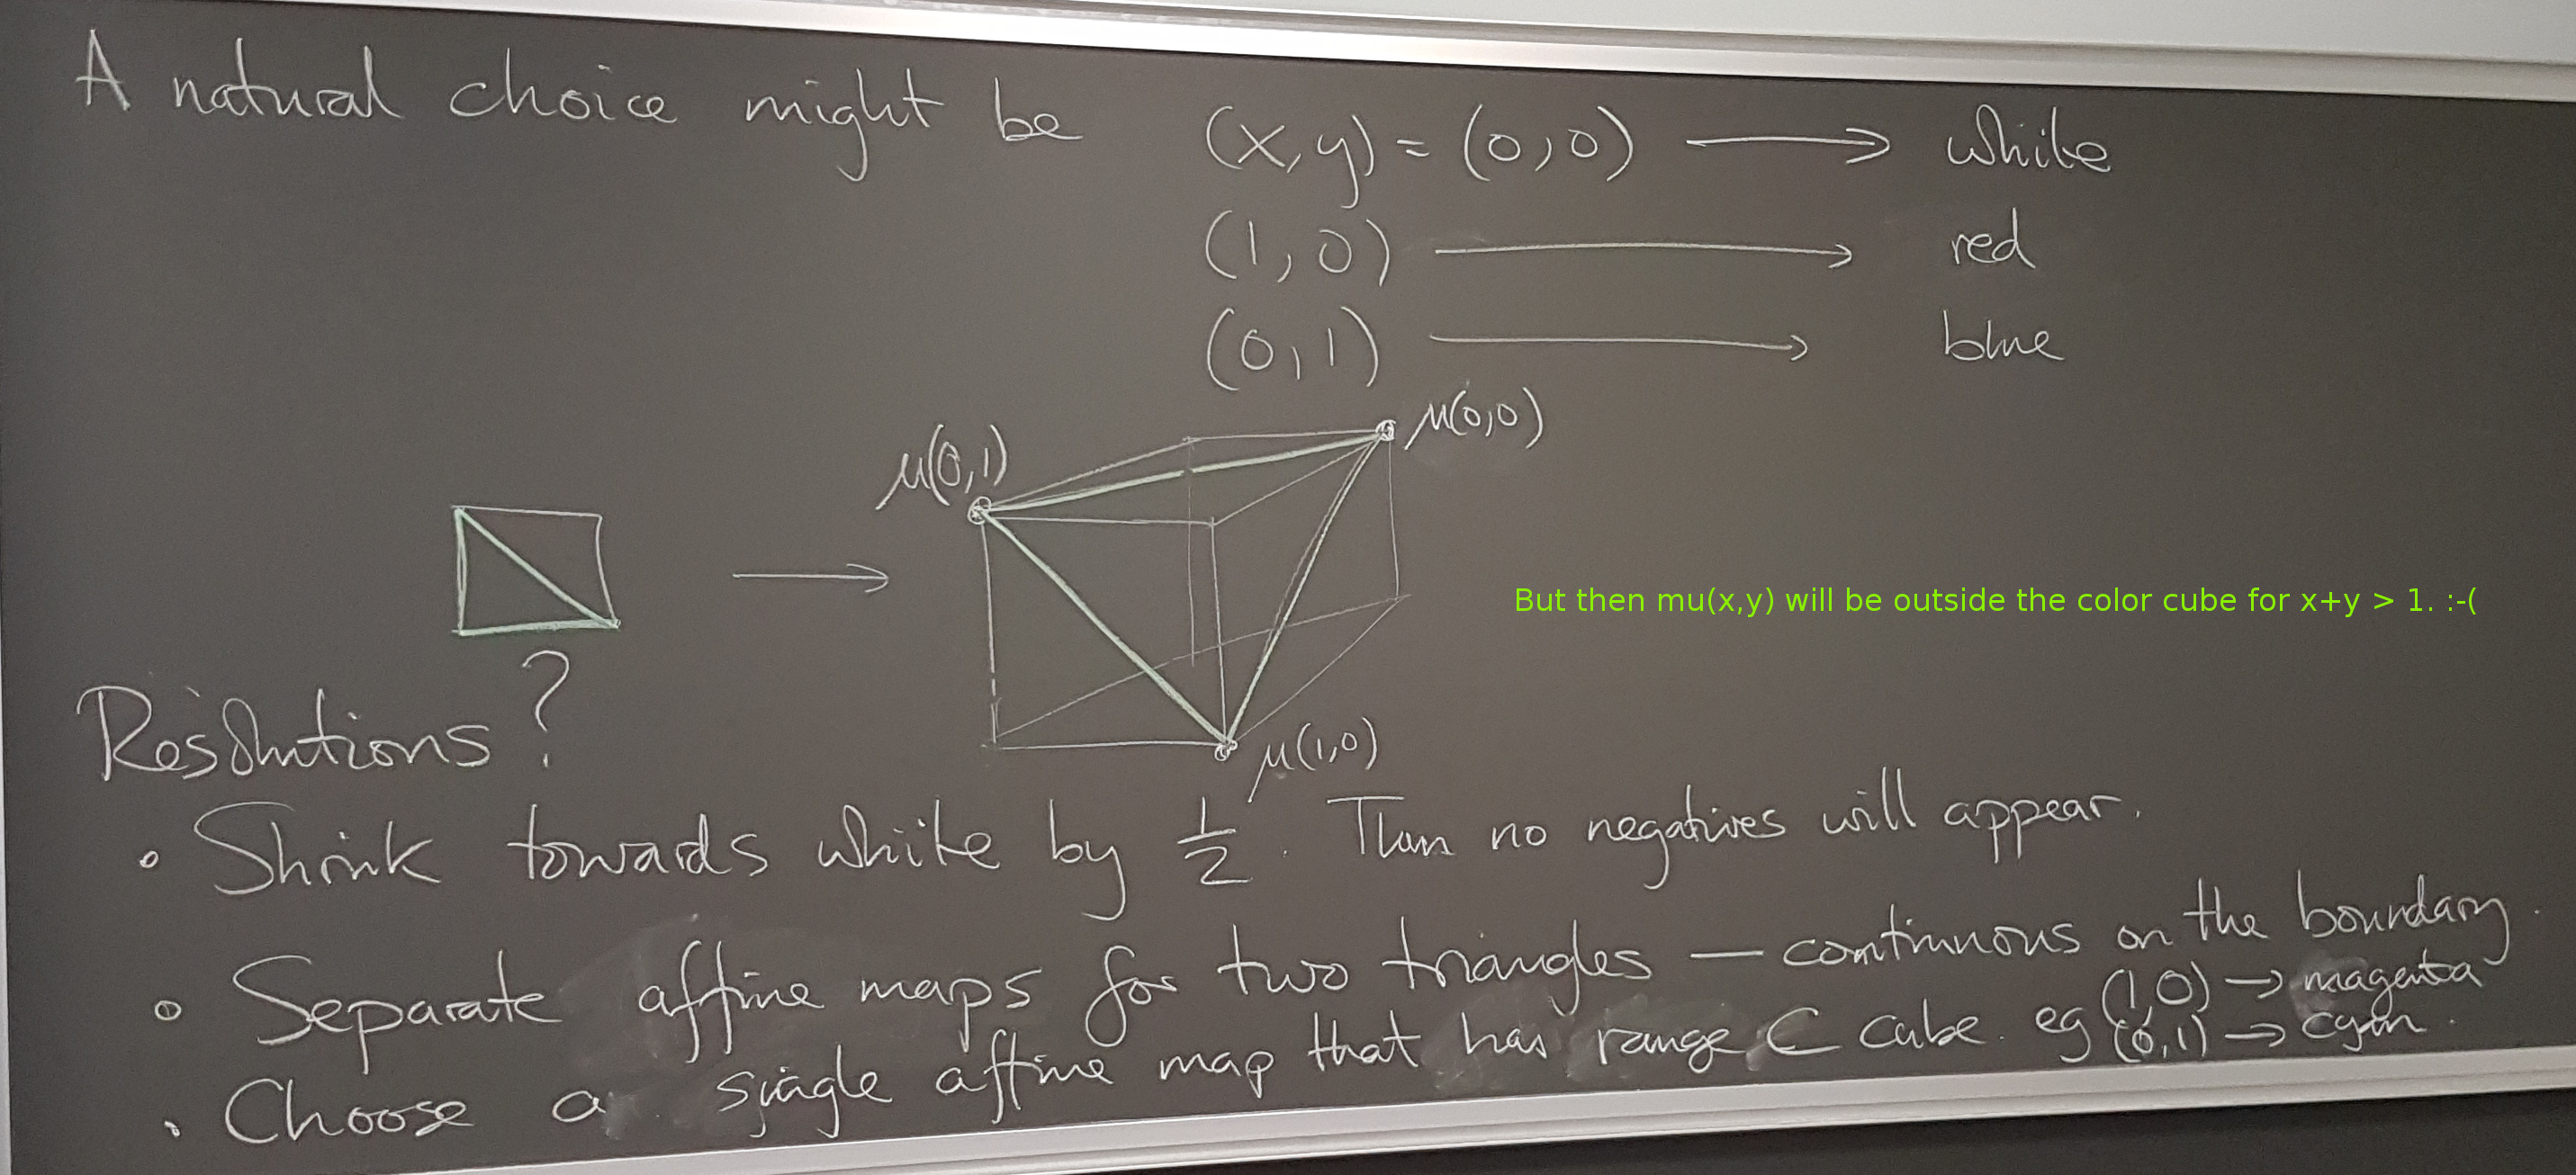 A natural choice might be (x,y) = (0,0) → white
(1,0) → red
(0,1) → blue
μ(0,1)
μ(0,0)
But then mu(x,y) will be outside the color cube for x+y > 1. :-(
μ(1,0)
Resolutions?
• Shrink towards white by 1/2. Then no negatives will appear.
• Separate affine maps for two triangles — continuous on the boundary.
• Choose a single affine map that has range ⊂ cube. eg (1,0) → magenta
(0,1) → cyan.